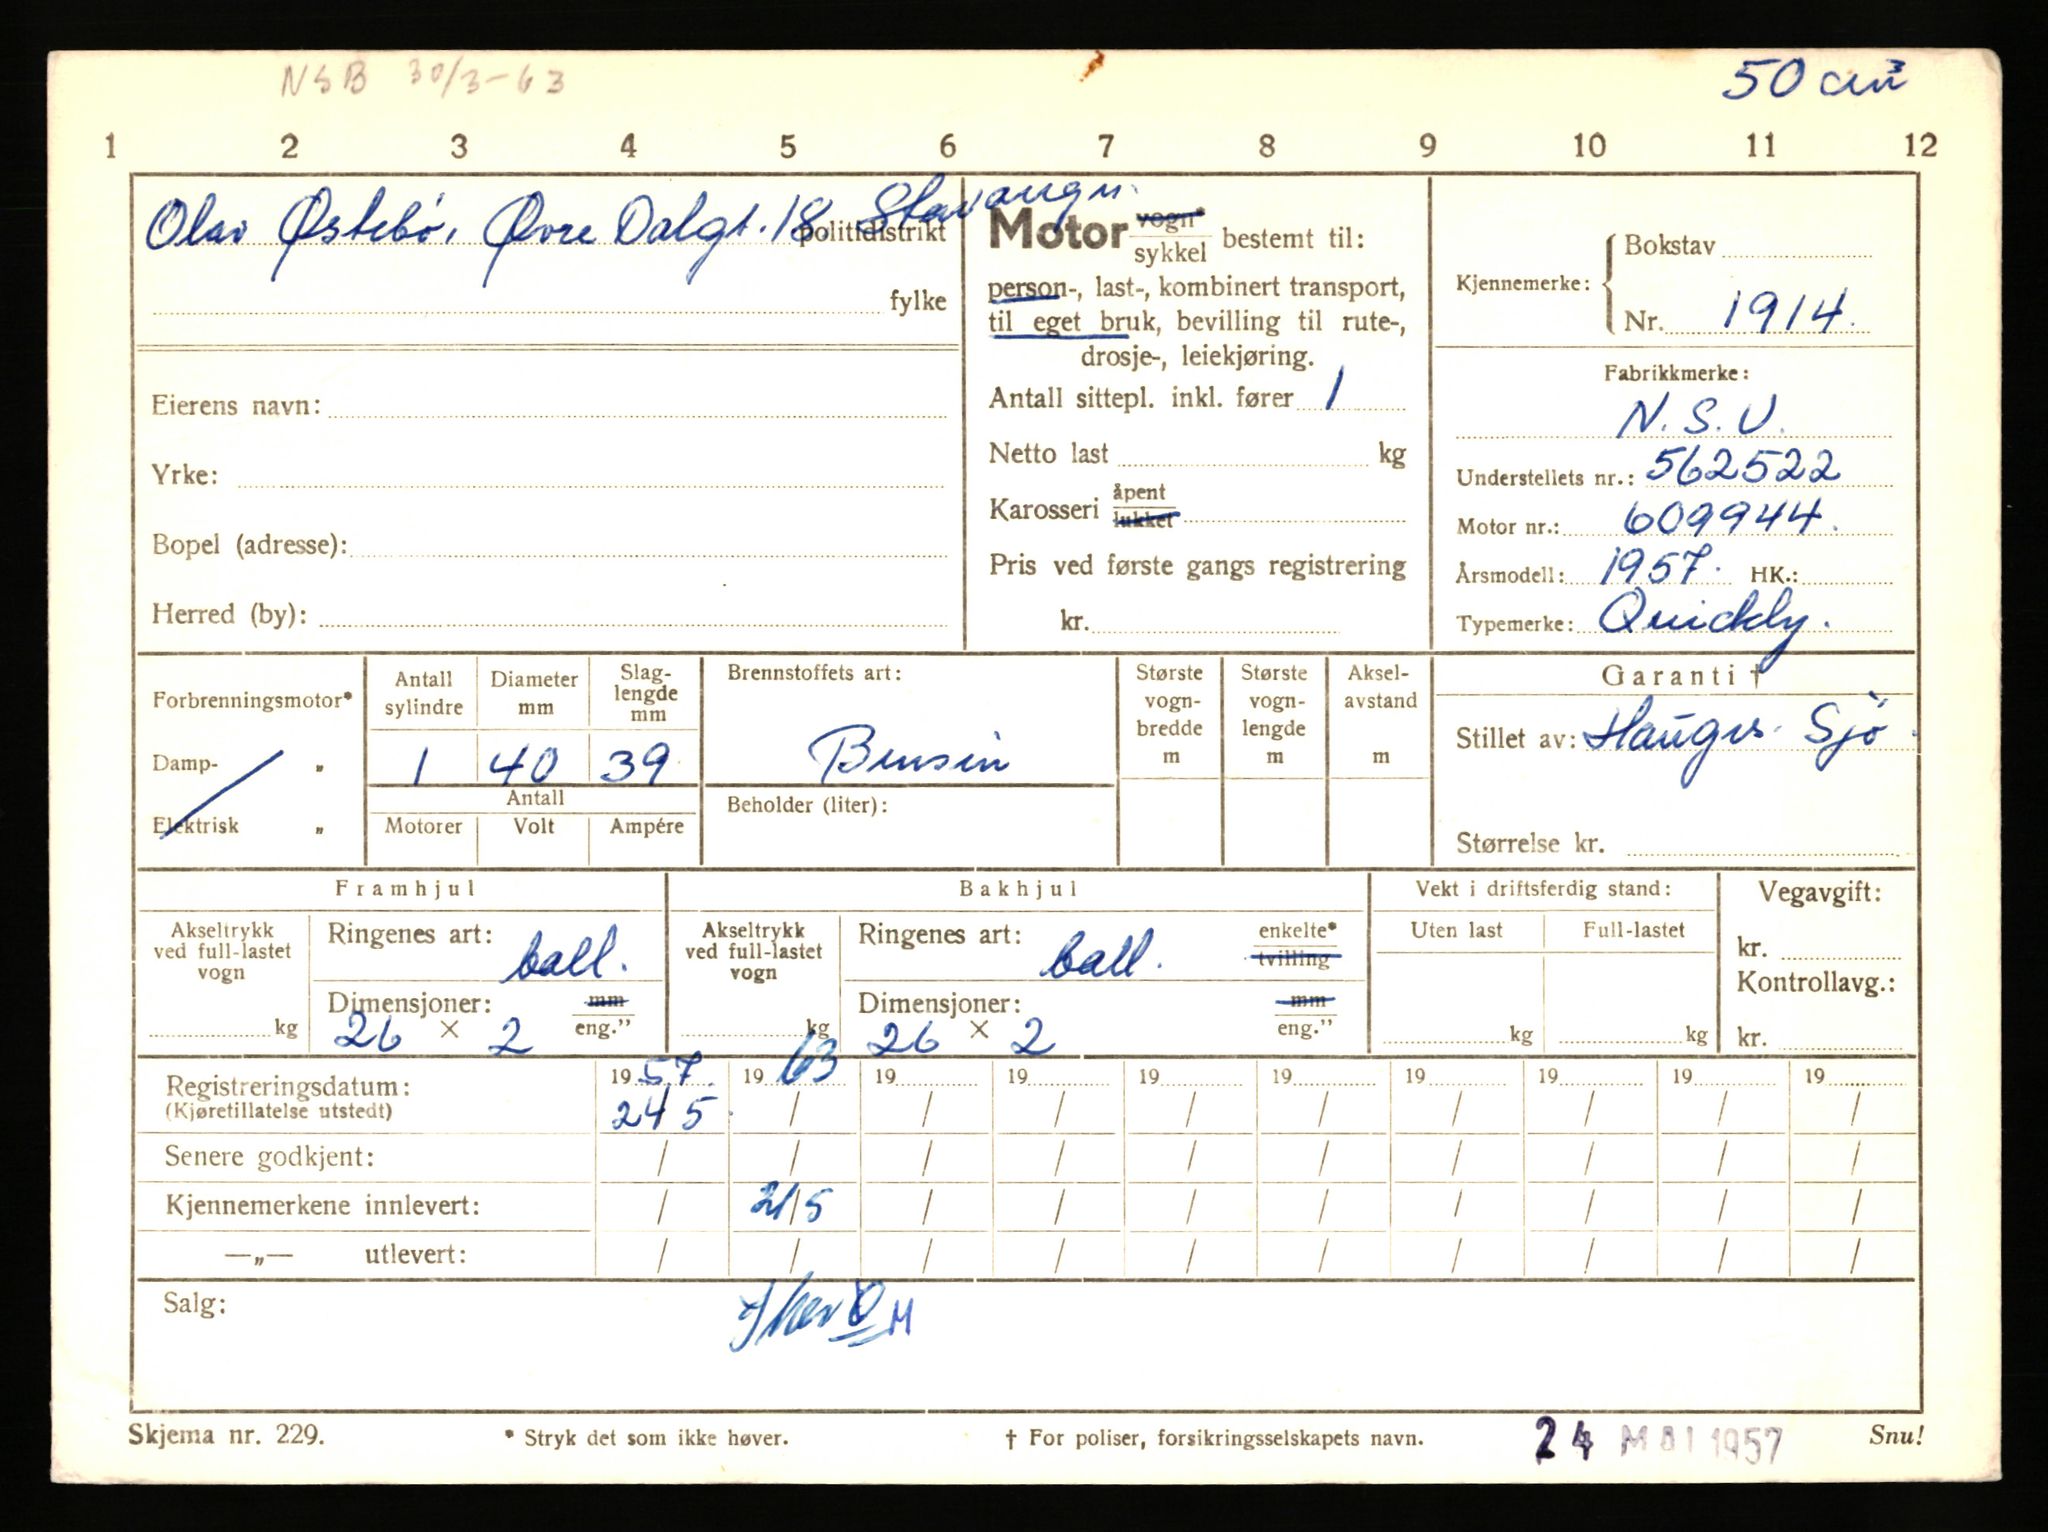 NSB 30/3-63
50 cm³
1 2 3 4 5 6 7 8 9 10 11 12
Olav Østebø, Øvre Dalgt. 18 Stavanger.
politidistrikt
fylke
Eierens navn:
Yrke:
Bopel (adresse):
Herred (by):
Motor vogn* / sykkel bestemt til:
person-, last-, kombinert transport,
til eget bruk, bevilling til rute-,
drosje-, leiekjøring.
Antall sittepl. inkl. fører 1
Netto last kg
Karosseri åpent / lukket
Pris ved første gangs registrering
kr.
Kjennemerke: Bokstav
Nr. 1914.
Fabrikkmerke:
N.S.U.
Understellets nr.: 562522
Motor nr.: 609944.
Årsmodell: 1957. HK.:
Typemerke: Quickly.
Forbrenningsmotor*
Damp- „
Elektrisk „
Antall sylindre
Diameter mm
Slag-lengde mm
1 40 39
Antall
Motorer Volt Ampére
Brennstoffets art:
Bensin
Beholder (liter):
Største vogn-bredde m
Største vogn-lengde m
Aksel-avstand m
Garanti †
Stillet av: Hauges. Sjø.
Størrelse kr.
Framhjul
Akseltrykk ved full-lastet vogn
kg
Ringenes art: ball.
Dimensjoner: mm / eng."
26 × 2
Bakhjul
Akseltrykk ved full-lastet vogn
kg
Ringenes art: ball. enkelte* / tvilling
Dimensjoner: mm / eng."
26 × 2
Vekt i driftsferdig stand:
Uten last Full-lastet
kg kg
Vegavgift:
kr.
Kontrollavg.:
kr.
Registreringsdatum: 1957. 1963 19 19 19 19 19 19 19 19
(Kjøretillatelse utstedt) 24/5 / / / / / / / / /
Senere godkjent: / / / / / / / / / /
Kjennemerkene innlevert: / 21/5 / / / / / / / /
—„— utlevert: / / / / / / / / / /
Salg:
Skjema nr. 229.
* Stryk det som ikke høver.
† For poliser, forsikringsselskapets navn.
24 MAI 1957
Snu!